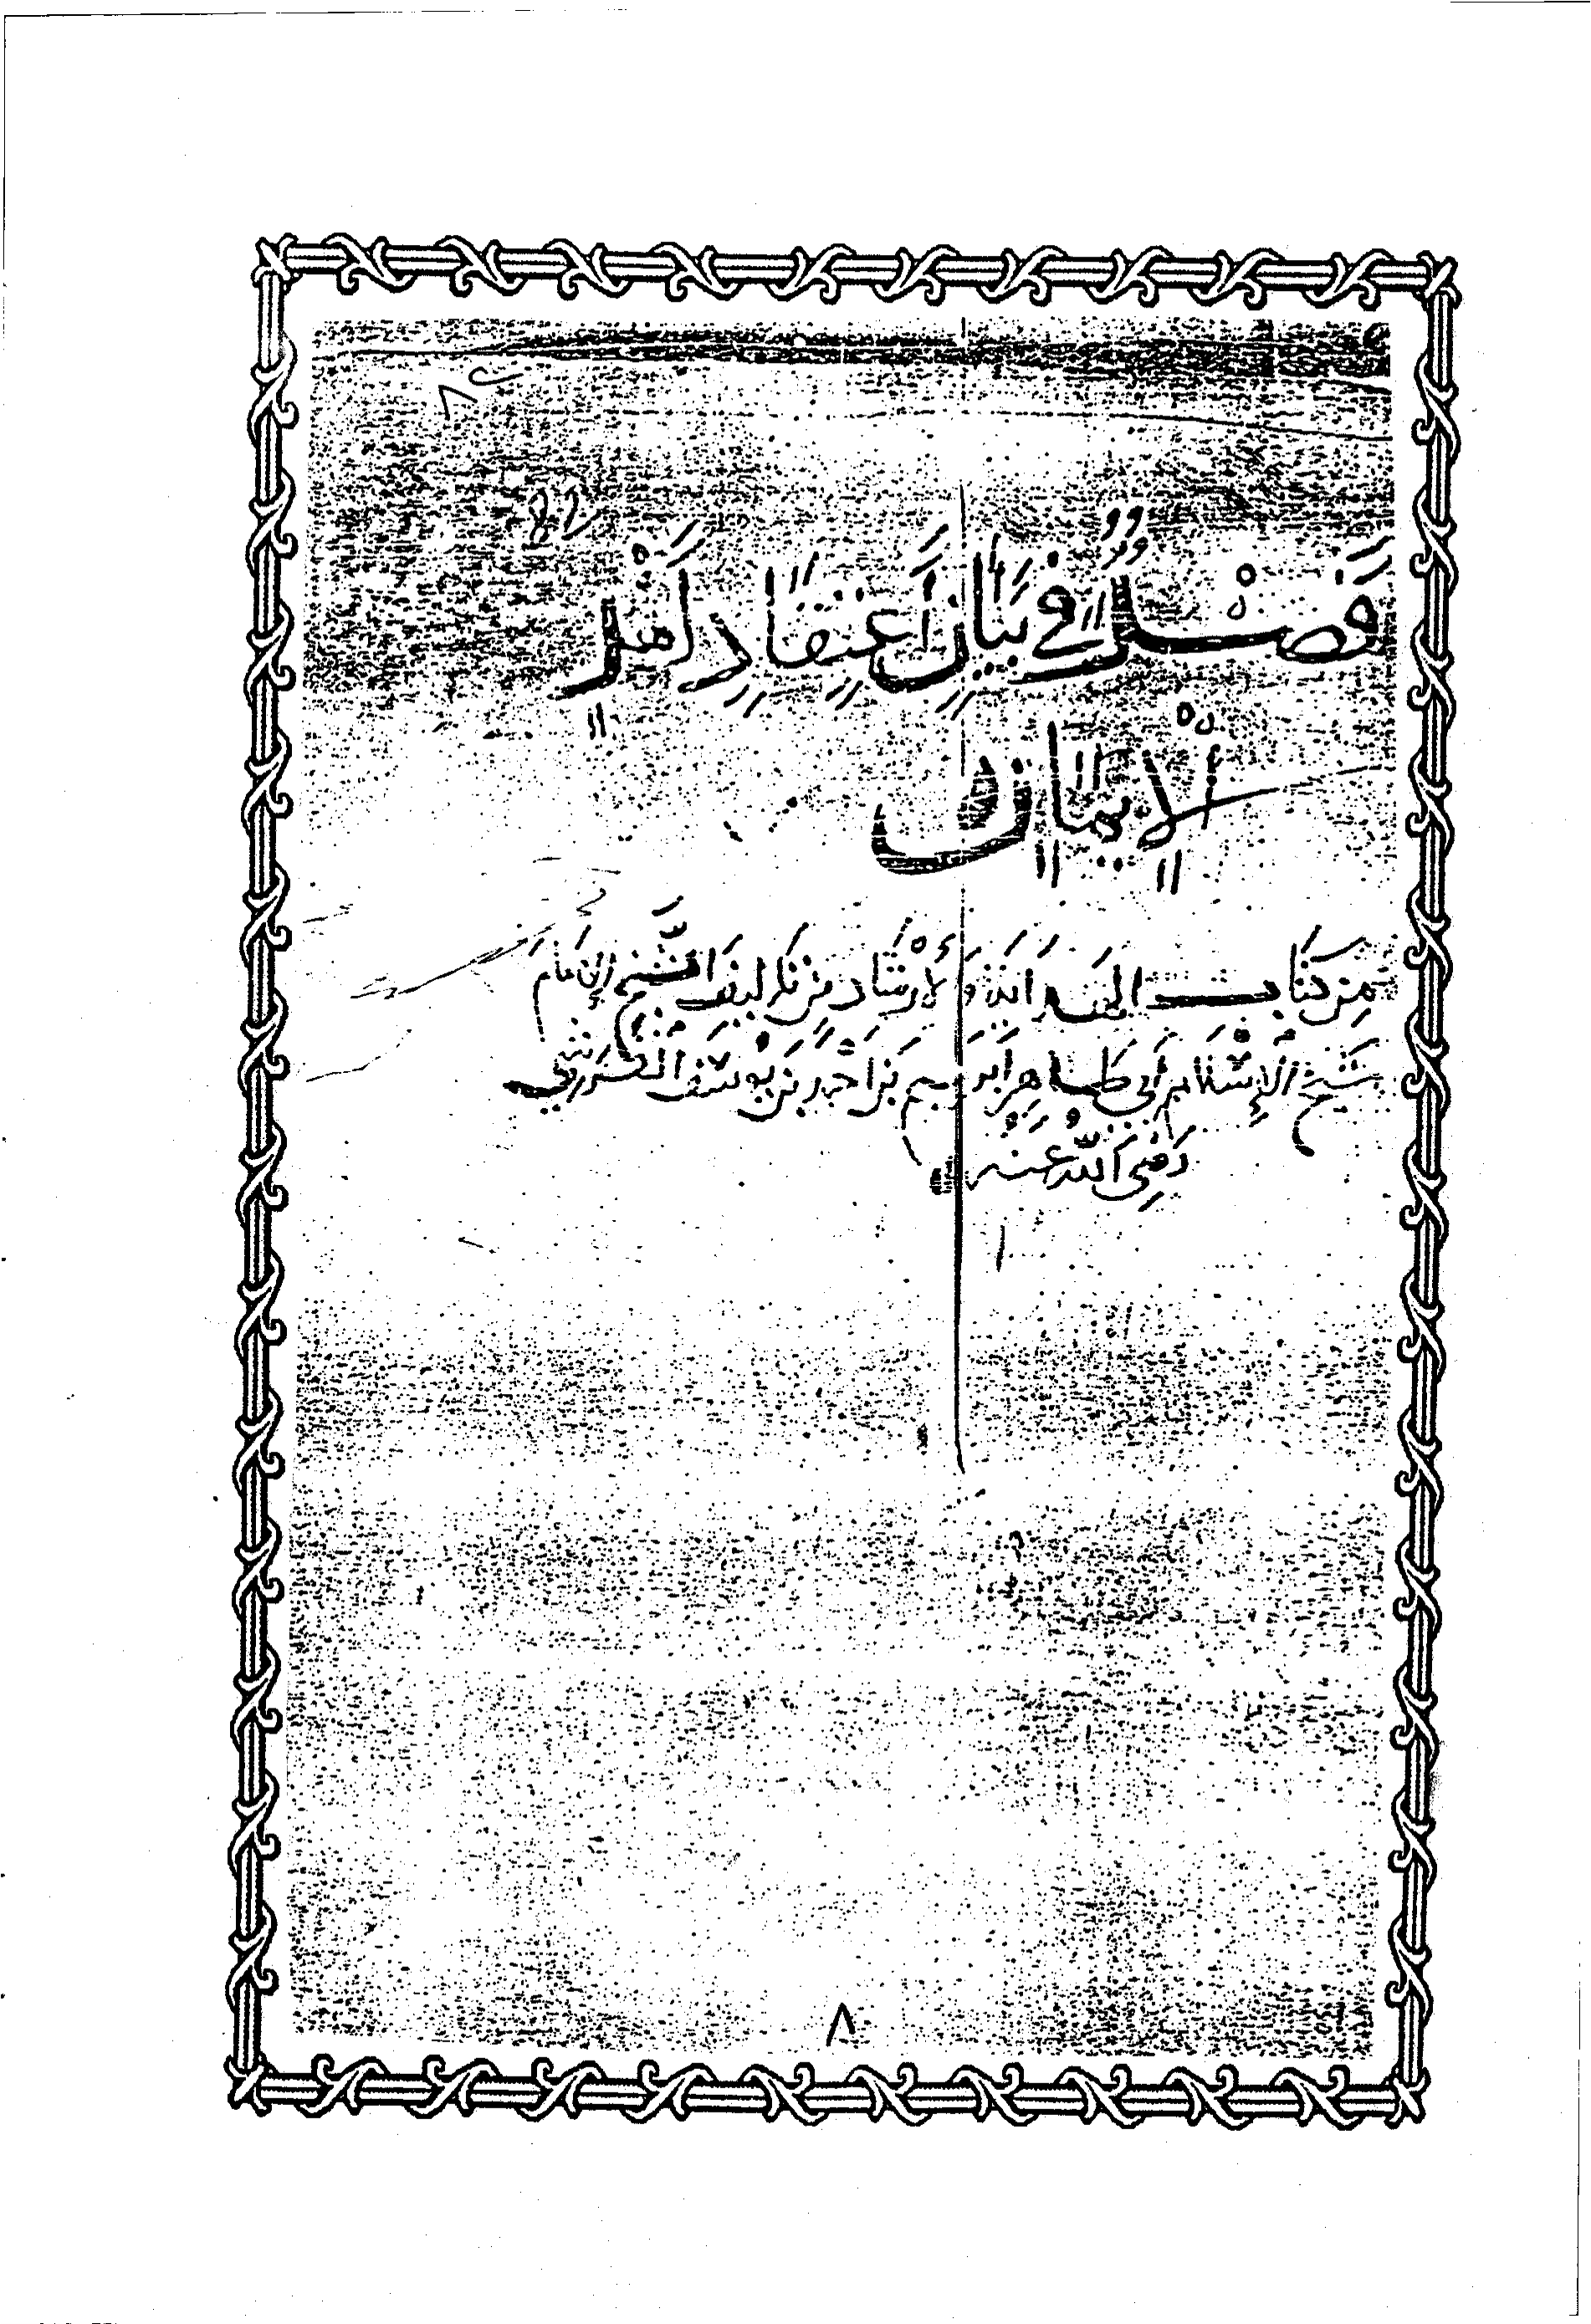 ٨٢
82
فَصْلٌ فِي بَيَانِ اعْتِقَادِ أَهْلِ
الْإِيمَانِ
مِن كِتَاب الهداية وَالْإِرْشَاد من تأليف الشَّيخ الإمَام
شَيخ الإِسْلام أبي طاهر إبرهيم بن أحمد بن يُوسُف القرشي
رَضِيَ اللَّه عنه
٨